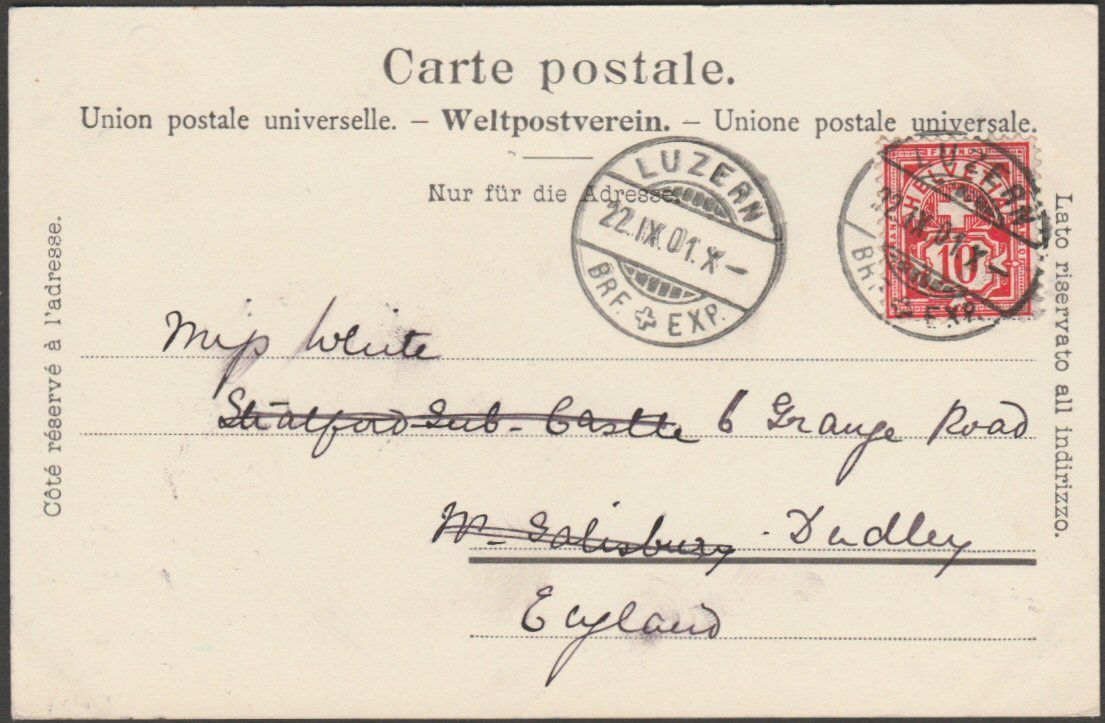 Carte postale.
Union postale universelle. – Weltpostverein. – Unione postale universale.
Nur für die Adresse.
Côté réservé à l'adresse.
Lato riservato all indirizzo.
LUZERN
22.IX.01.X–
BRF. EXP.
FRANCO
HELVETIA
10
LUZERN
22.IX.01.X–
BRF. EXP.
Miss White
Stratford Sub-Castle 6 Grange Road
Nr Salisbury - Dudley
England